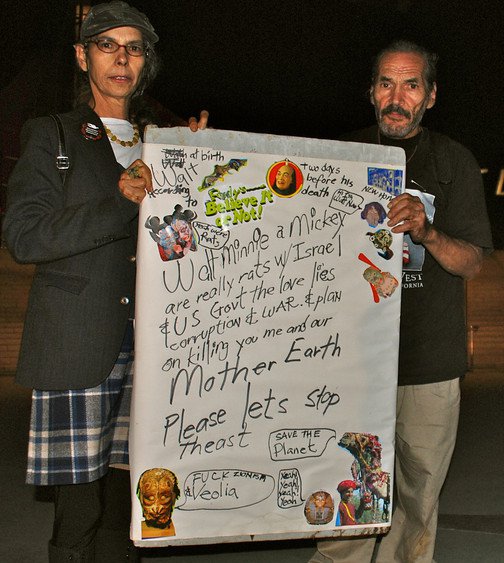 at birth
Walt
According
to
Ripley's
Believe It
or Not!
two days
before his
death
NEW YORK
Walt Minnie a Mickey
are really rats w/ Israel
& US Govt the love lies
corruption & WAR. & plan
on killing you me and our
Mother Earth
Please lets stop
Theast
SAVE THE
Planet
FUCK ZIONISM
& Veolia
Yeah
Yeah!
Yeah!
Yeah
VEST
FORNIA